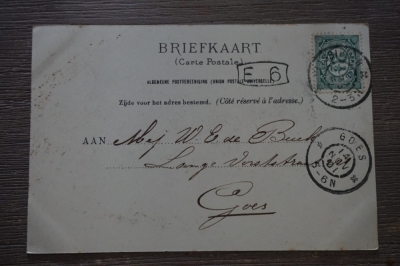 BRIEFKAART
(Carte Postale)
ALGEMEENE POSTVEREENIGING (UNION POSTALE UNIVERSELLE)
E 6
Zijde voor het adres bestemd. (Côté réservé à l'adresse.)
2-3N
AAN Mej W. E de Buck
Lange Vorststraat
Goes
GOES
5-6N